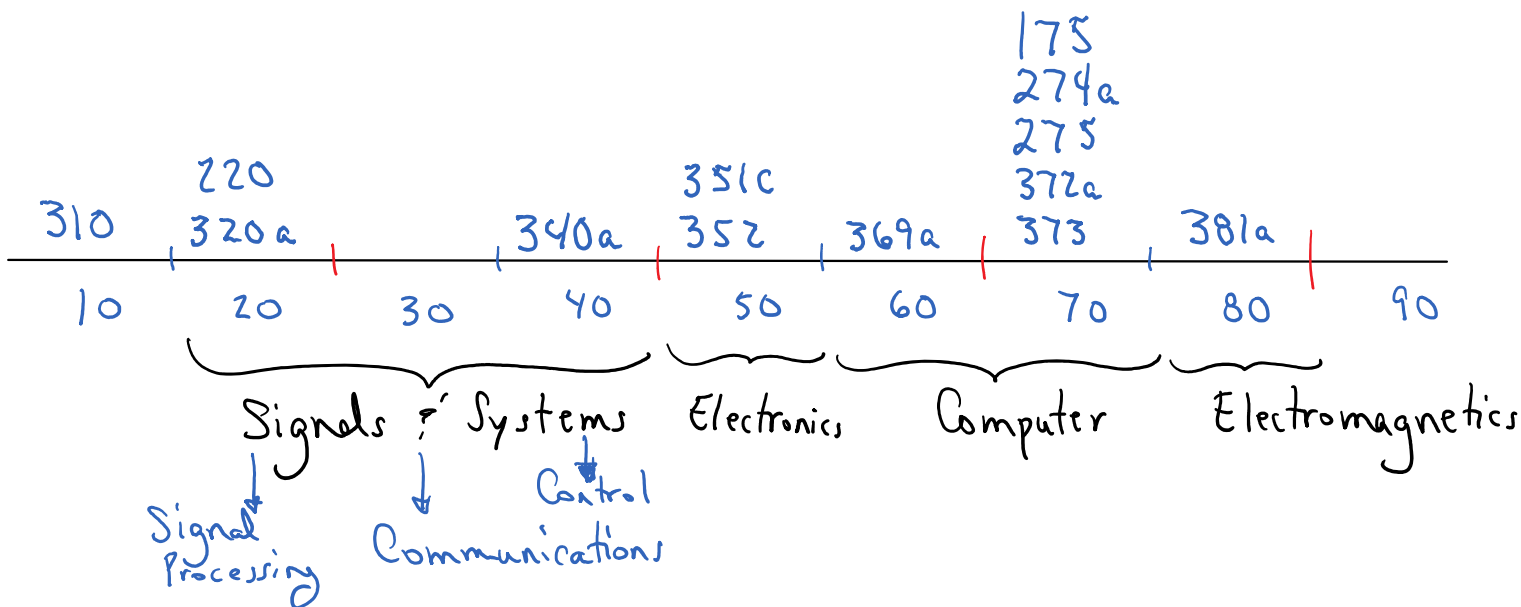 175
274a
275
220 351C 372a
310 320a 340a 352 369a 373 381a
10 20 30 40 50 60 70 80 90
Signals & Systems Electronics Computer Electromagnetics
Control
Signal Processing
Communications